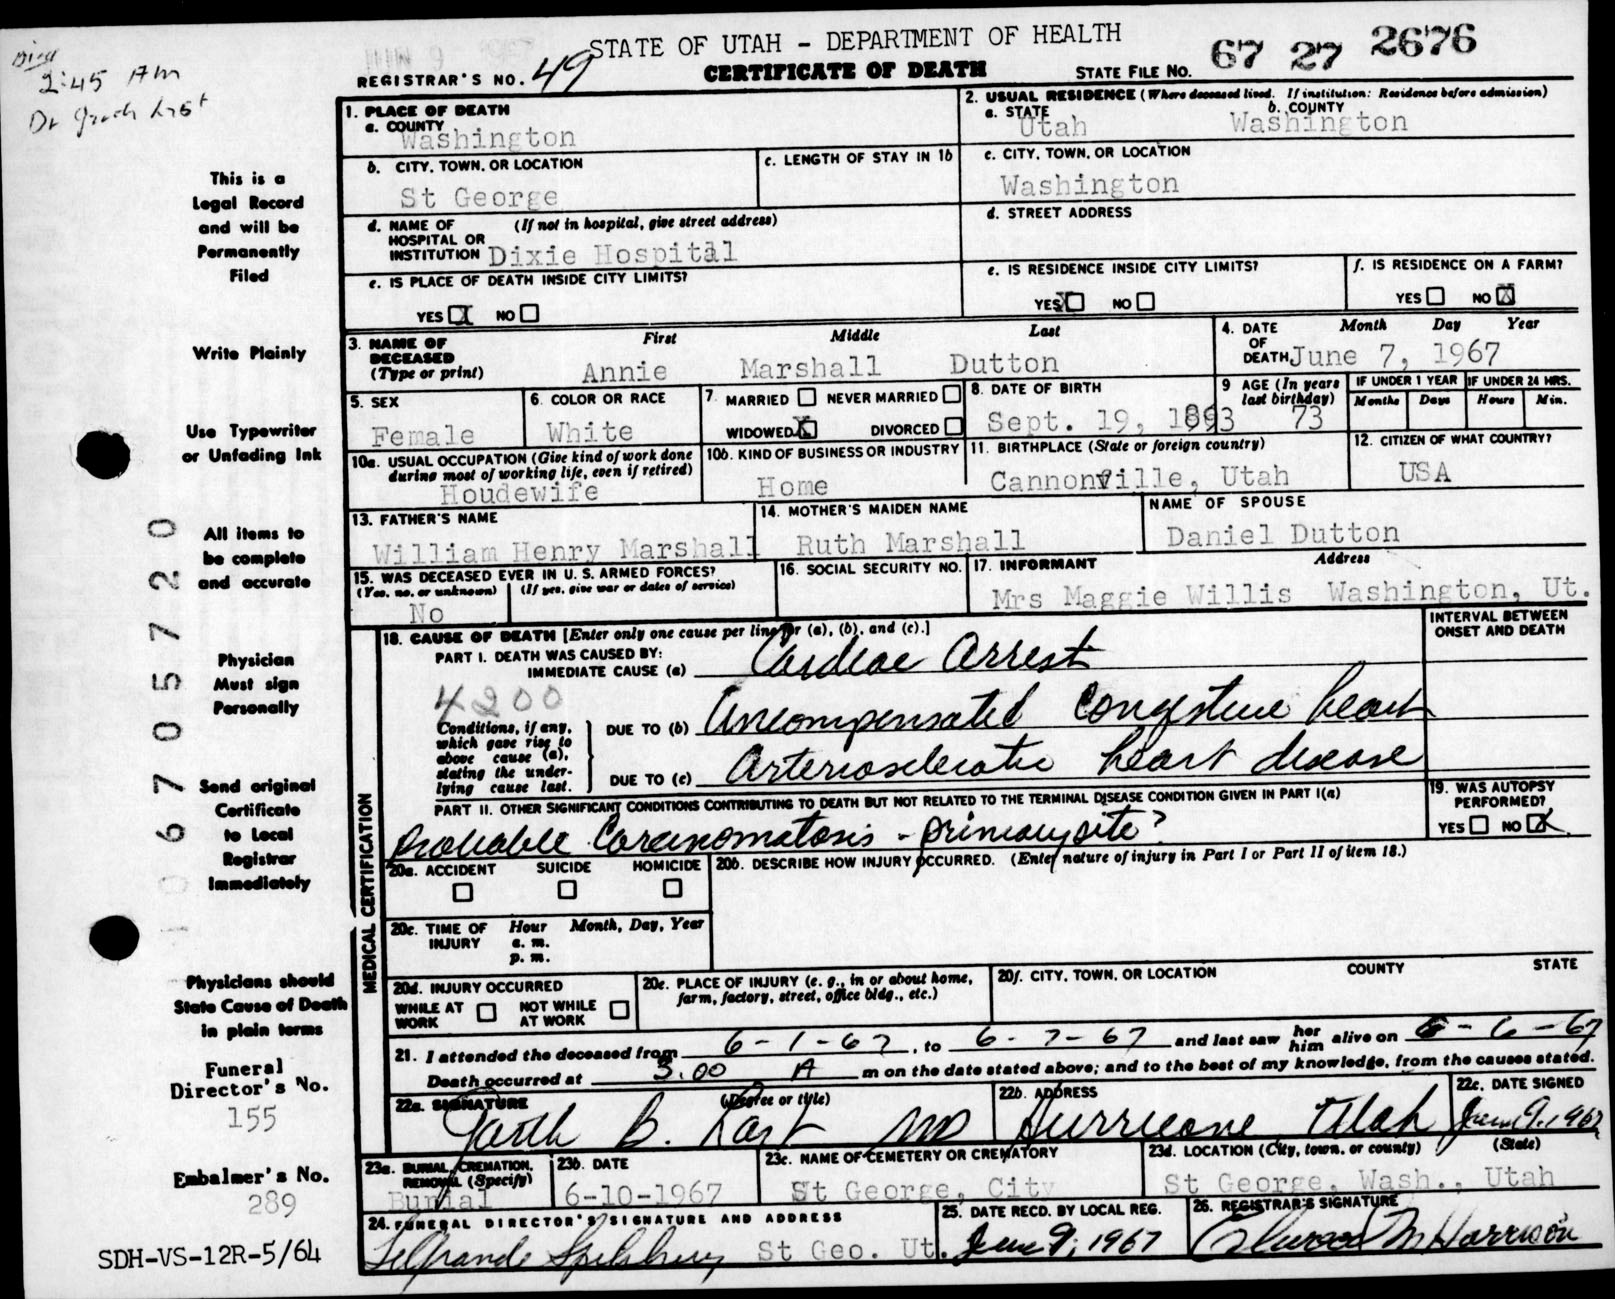 Died
2:45 AM
STATE OF UTAH - DEPARTMENT OF HEALTH
REGISTRAR'S NO. 49
CERTIFICATE OF DEATH
STATE FILE NO. 67 27 2676
1. PLACE OF DEATH
a. COUNTY
Washington
2. USUAL RESIDENCE (Where deceased lived. If institution: Residence before admission)
a. STATE
Utah
b. COUNTY
Washington
b. CITY, TOWN, OR LOCATION
St George
c. LENGTH OF STAY IN 1b
c. CITY, TOWN, OR LOCATION
Washington
d. NAME OF HOSPITAL OR INSTITUTION
(If not in hospital, give street address)
Dixie Hospital
d. STREET ADDRESS
e. IS PLACE OF DEATH INSIDE CITY LIMITS?
YES X NO
e. IS RESIDENCE INSIDE CITY LIMITS?
YES X NO
f. IS RESIDENCE ON A FARM?
YES NO X
3. NAME OF DECEASED (Type or print)
First Middle Last
Annie Marshall Dutton
4. DATE OF DEATH
Month Day Year
June 7, 1967
5. SEX
Female
6. COLOR OR RACE
White
7. MARRIED NEVER MARRIED
WIDOWED X DIVORCED
8. DATE OF BIRTH
Sept. 19, 1893
9 AGE (In years last birthday)
73
IF UNDER 1 YEAR
Months Days
IF UNDER 24 HRS.
Hours Min.
10a. USUAL OCCUPATION (Give kind of work done during most of working life, even if retired)
Houdewife
10b. KIND OF BUSINESS OR INDUSTRY
Home
11. BIRTHPLACE (State or foreign country)
Cannonville, Utah
12. CITIZEN OF WHAT COUNTRY?
USA
13. FATHER'S NAME
William Henry Marshall
14. MOTHER'S MAIDEN NAME
Ruth Marshall
NAME OF SPOUSE
Daniel Dutton
15. WAS DECEASED EVER IN U. S. ARMED FORCES?
(Yes, no, or unknown) (If yes, give war or dates of service)
No
16. SOCIAL SECURITY NO.
17. INFORMANT Address
Mrs Maggie Willis Washington, Ut.
MEDICAL CERTIFICATION
18. CAUSE OF DEATH [Enter only one cause per line for (a), (b), and (c).]
INTERVAL BETWEEN ONSET AND DEATH
PART I. DEATH WAS CAUSED BY:
IMMEDIATE CAUSE (a) Cardiac Arrest
4200
Conditions, if any, which gave rise to above cause (a), stating the underlying cause last.
DUE TO (b) Uncompensated Congestive heart
DUE TO (c) Arteriosclerotic heart disease
PART II. OTHER SIGNIFICANT CONDITIONS CONTRIBUTING TO DEATH BUT NOT RELATED TO THE TERMINAL DISEASE CONDITION GIVEN IN PART I(a)
Probable Carcinomatosis - primary site?
19. WAS AUTOPSY PERFORMED?
YES NO X
20a. ACCIDENT SUICIDE HOMICIDE
20b. DESCRIBE HOW INJURY OCCURRED. (Enter nature of injury in Part I or Part II of item 18.)
20c. TIME OF INJURY
Hour Month, Day, Year
a. m.
p. m.
20d. INJURY OCCURRED
WHILE AT WORK NOT WHILE AT WORK
20e. PLACE OF INJURY (e. g., in or about home, farm, factory, street, office bldg., etc.)
20f. CITY, TOWN, OR LOCATION COUNTY STATE
21. I attended the deceased from 6-1-67, to 6-7-67 and last saw her him alive on 6-6-67
Death occurred at 3:00 A m on the date stated above; and to the best of my knowledge, from the causes stated.
22a. SIGNATURE (Degree or title)
Garth B. Last MD
22b. ADDRESS
Hurricane Utah
22c. DATE SIGNED
June 9, 1967
23a. BURIAL, CREMATION, REMOVAL (Specify)
Burial
23b. DATE
6-10-1967
23c. NAME OF CEMETERY OR CREMATORY
St George, City
23d. LOCATION (City, town, or county) (State)
St George, Wash., Utah
24. FUNERAL DIRECTOR'S SIGNATURE AND ADDRESS
LeGrande Spilsbury St Geo. Ut.
25. DATE RECD. BY LOCAL REG.
June 9, 1967
26. REGISTRAR'S SIGNATURE
M Harrison
This is a
Legal Record
and will be
Permanently
Filed
Write Plainly
Use Typewriter
or Unfading Ink
All items to
be complete
and accurate
Physician
Must sign
Personally
Send original
Certificate
to Local
Registrar
Immediately
Physicians should
State Cause of Death
in plain terms
Funeral
Director's No.
155
Embalmer's No.
289
SDH-VS-12R-5/64